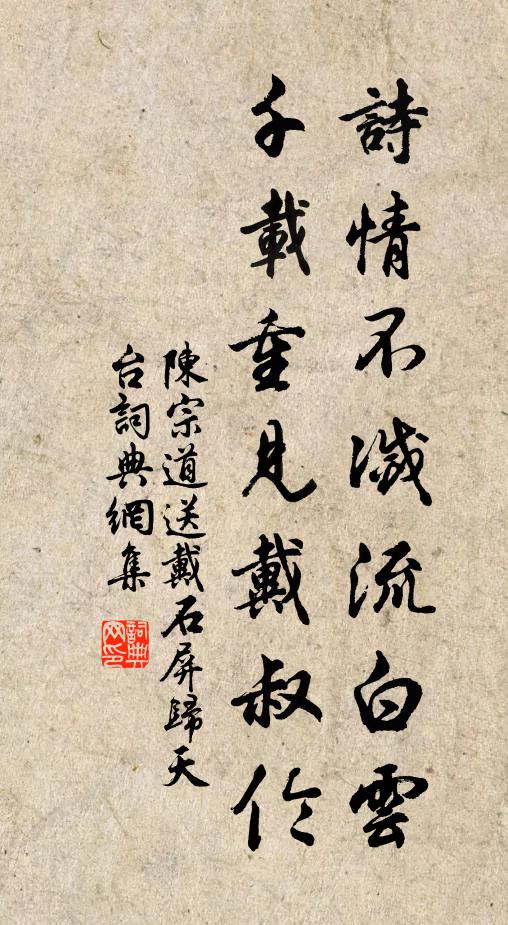 詩情不減流白雲
千載重見戴叔伦
陳宗道送戴石屏歸天
台詞典網集
詞典
网印